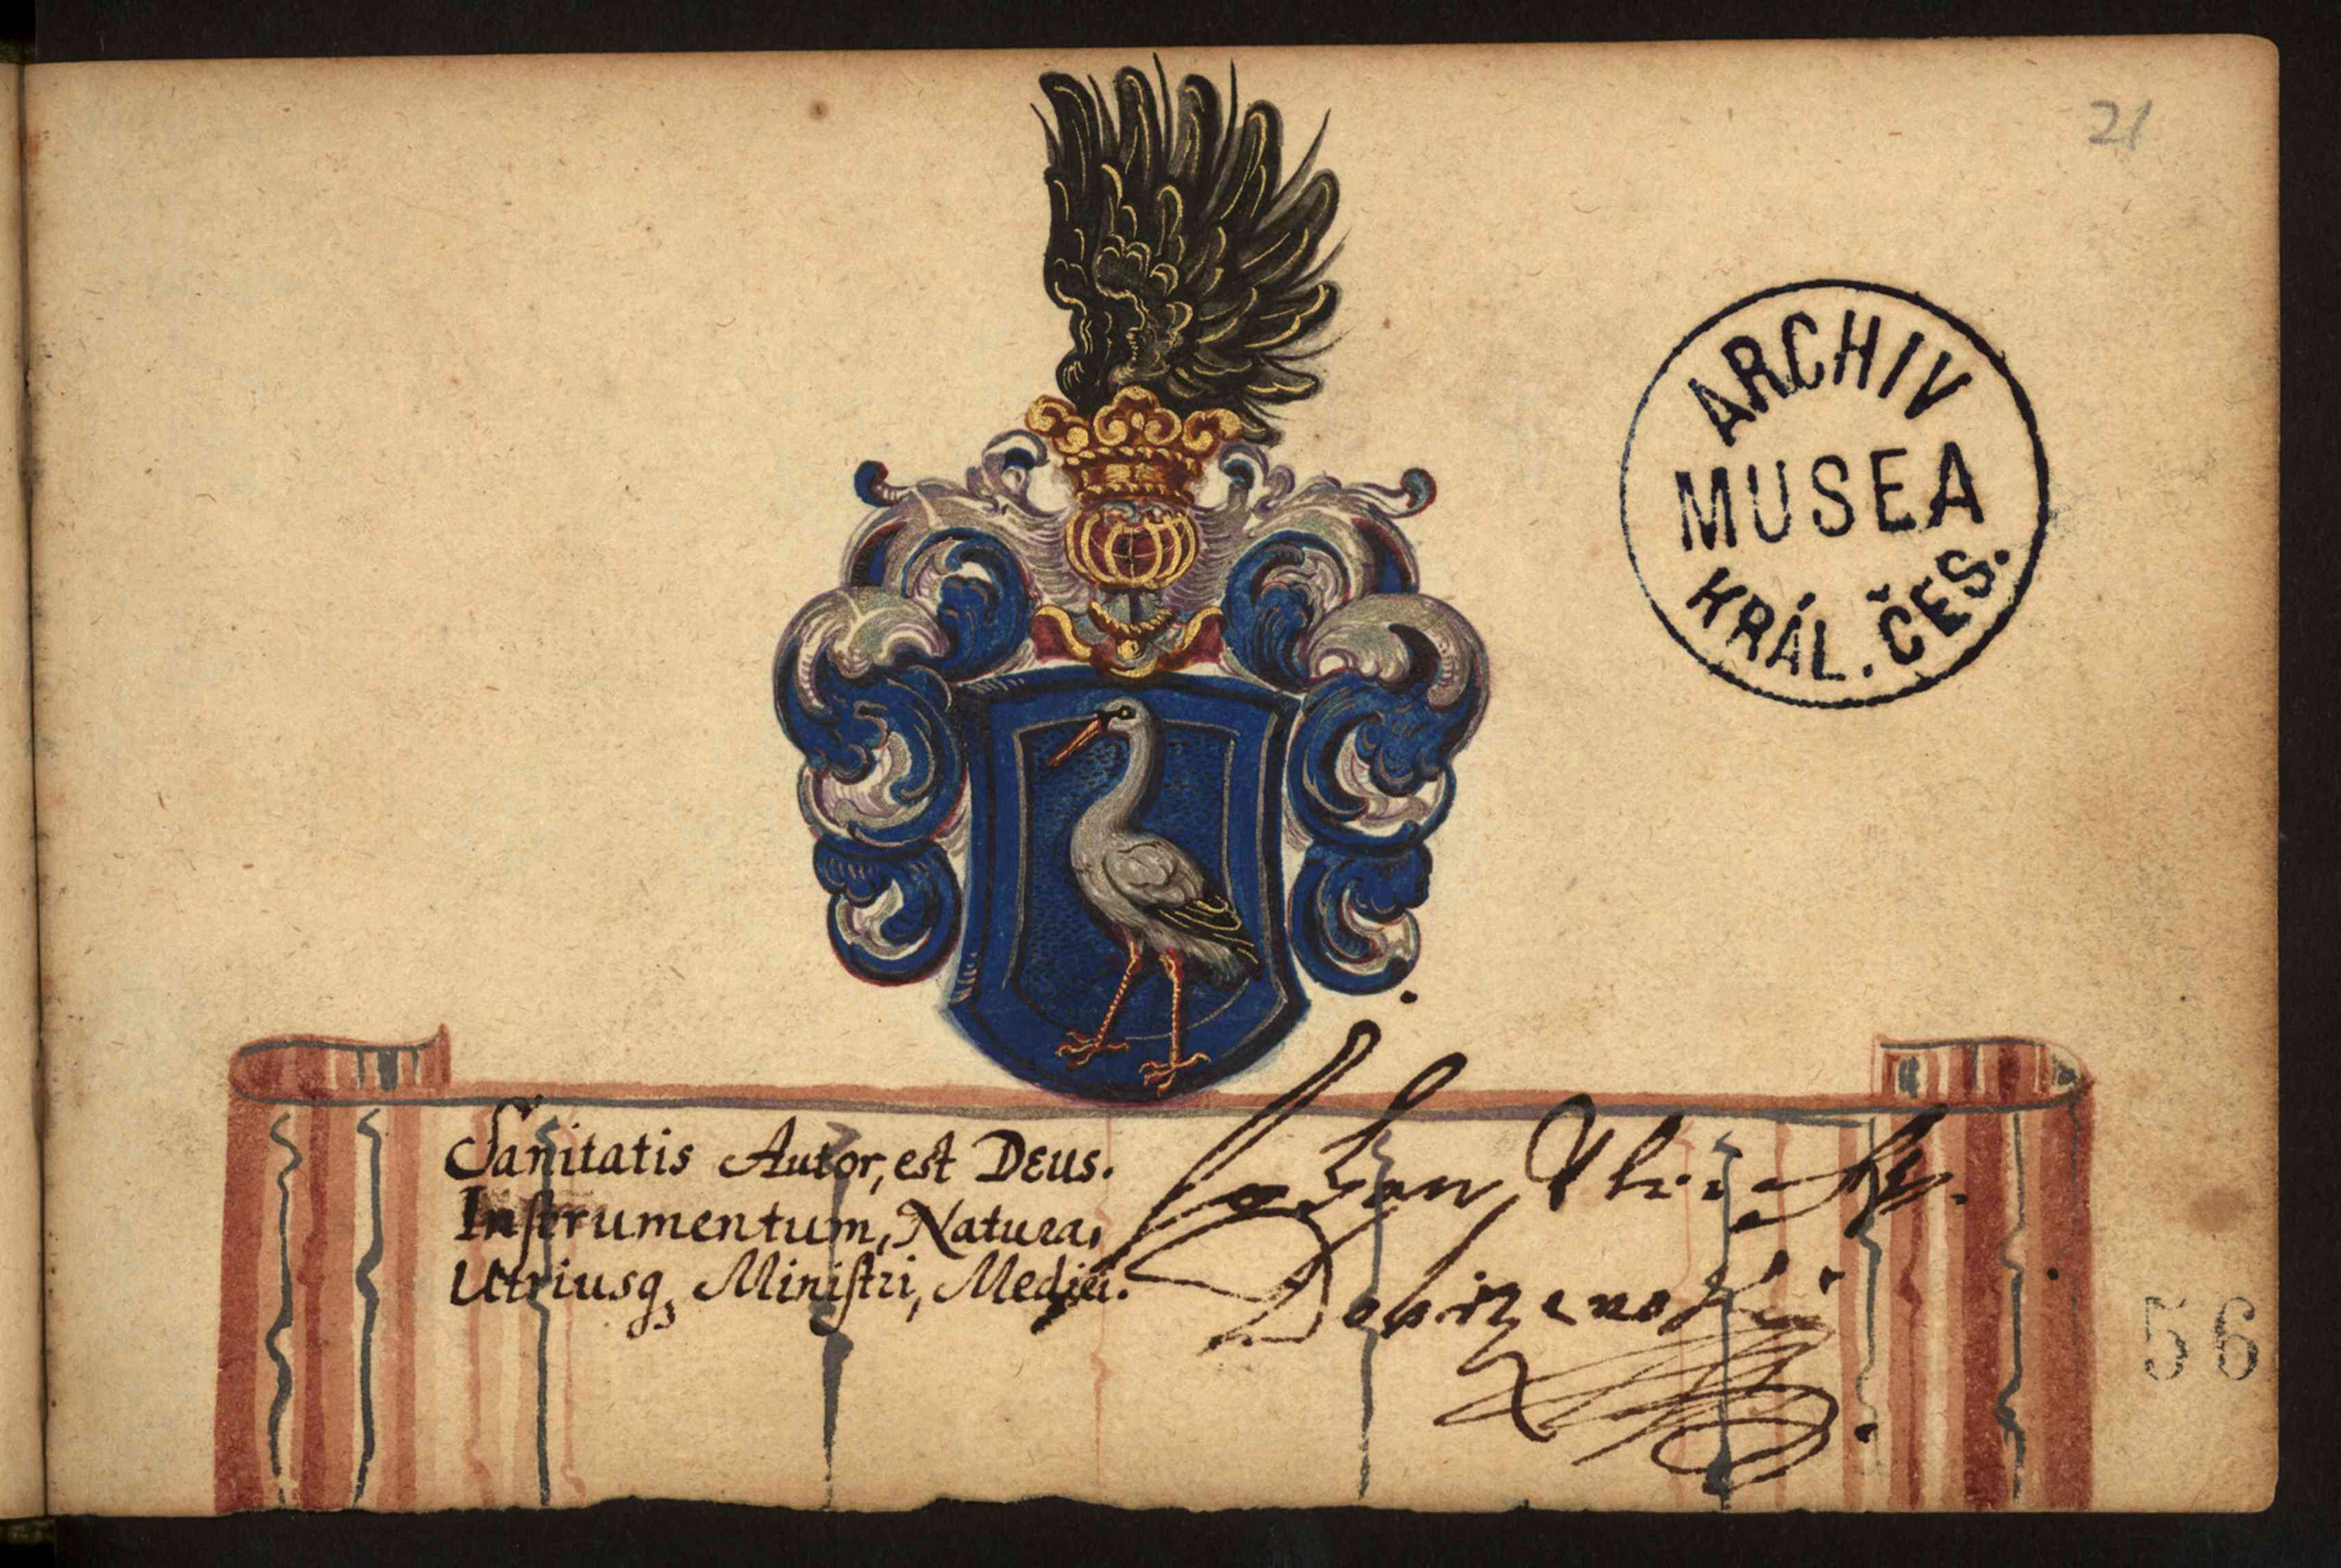 21
ARCHIV
MUSEA
KRÁL. ČES.
Sanitatis Autor, est Deus.
Instrumentum, Natura,
Utriusq; Ministri, Medici.
Johan
56